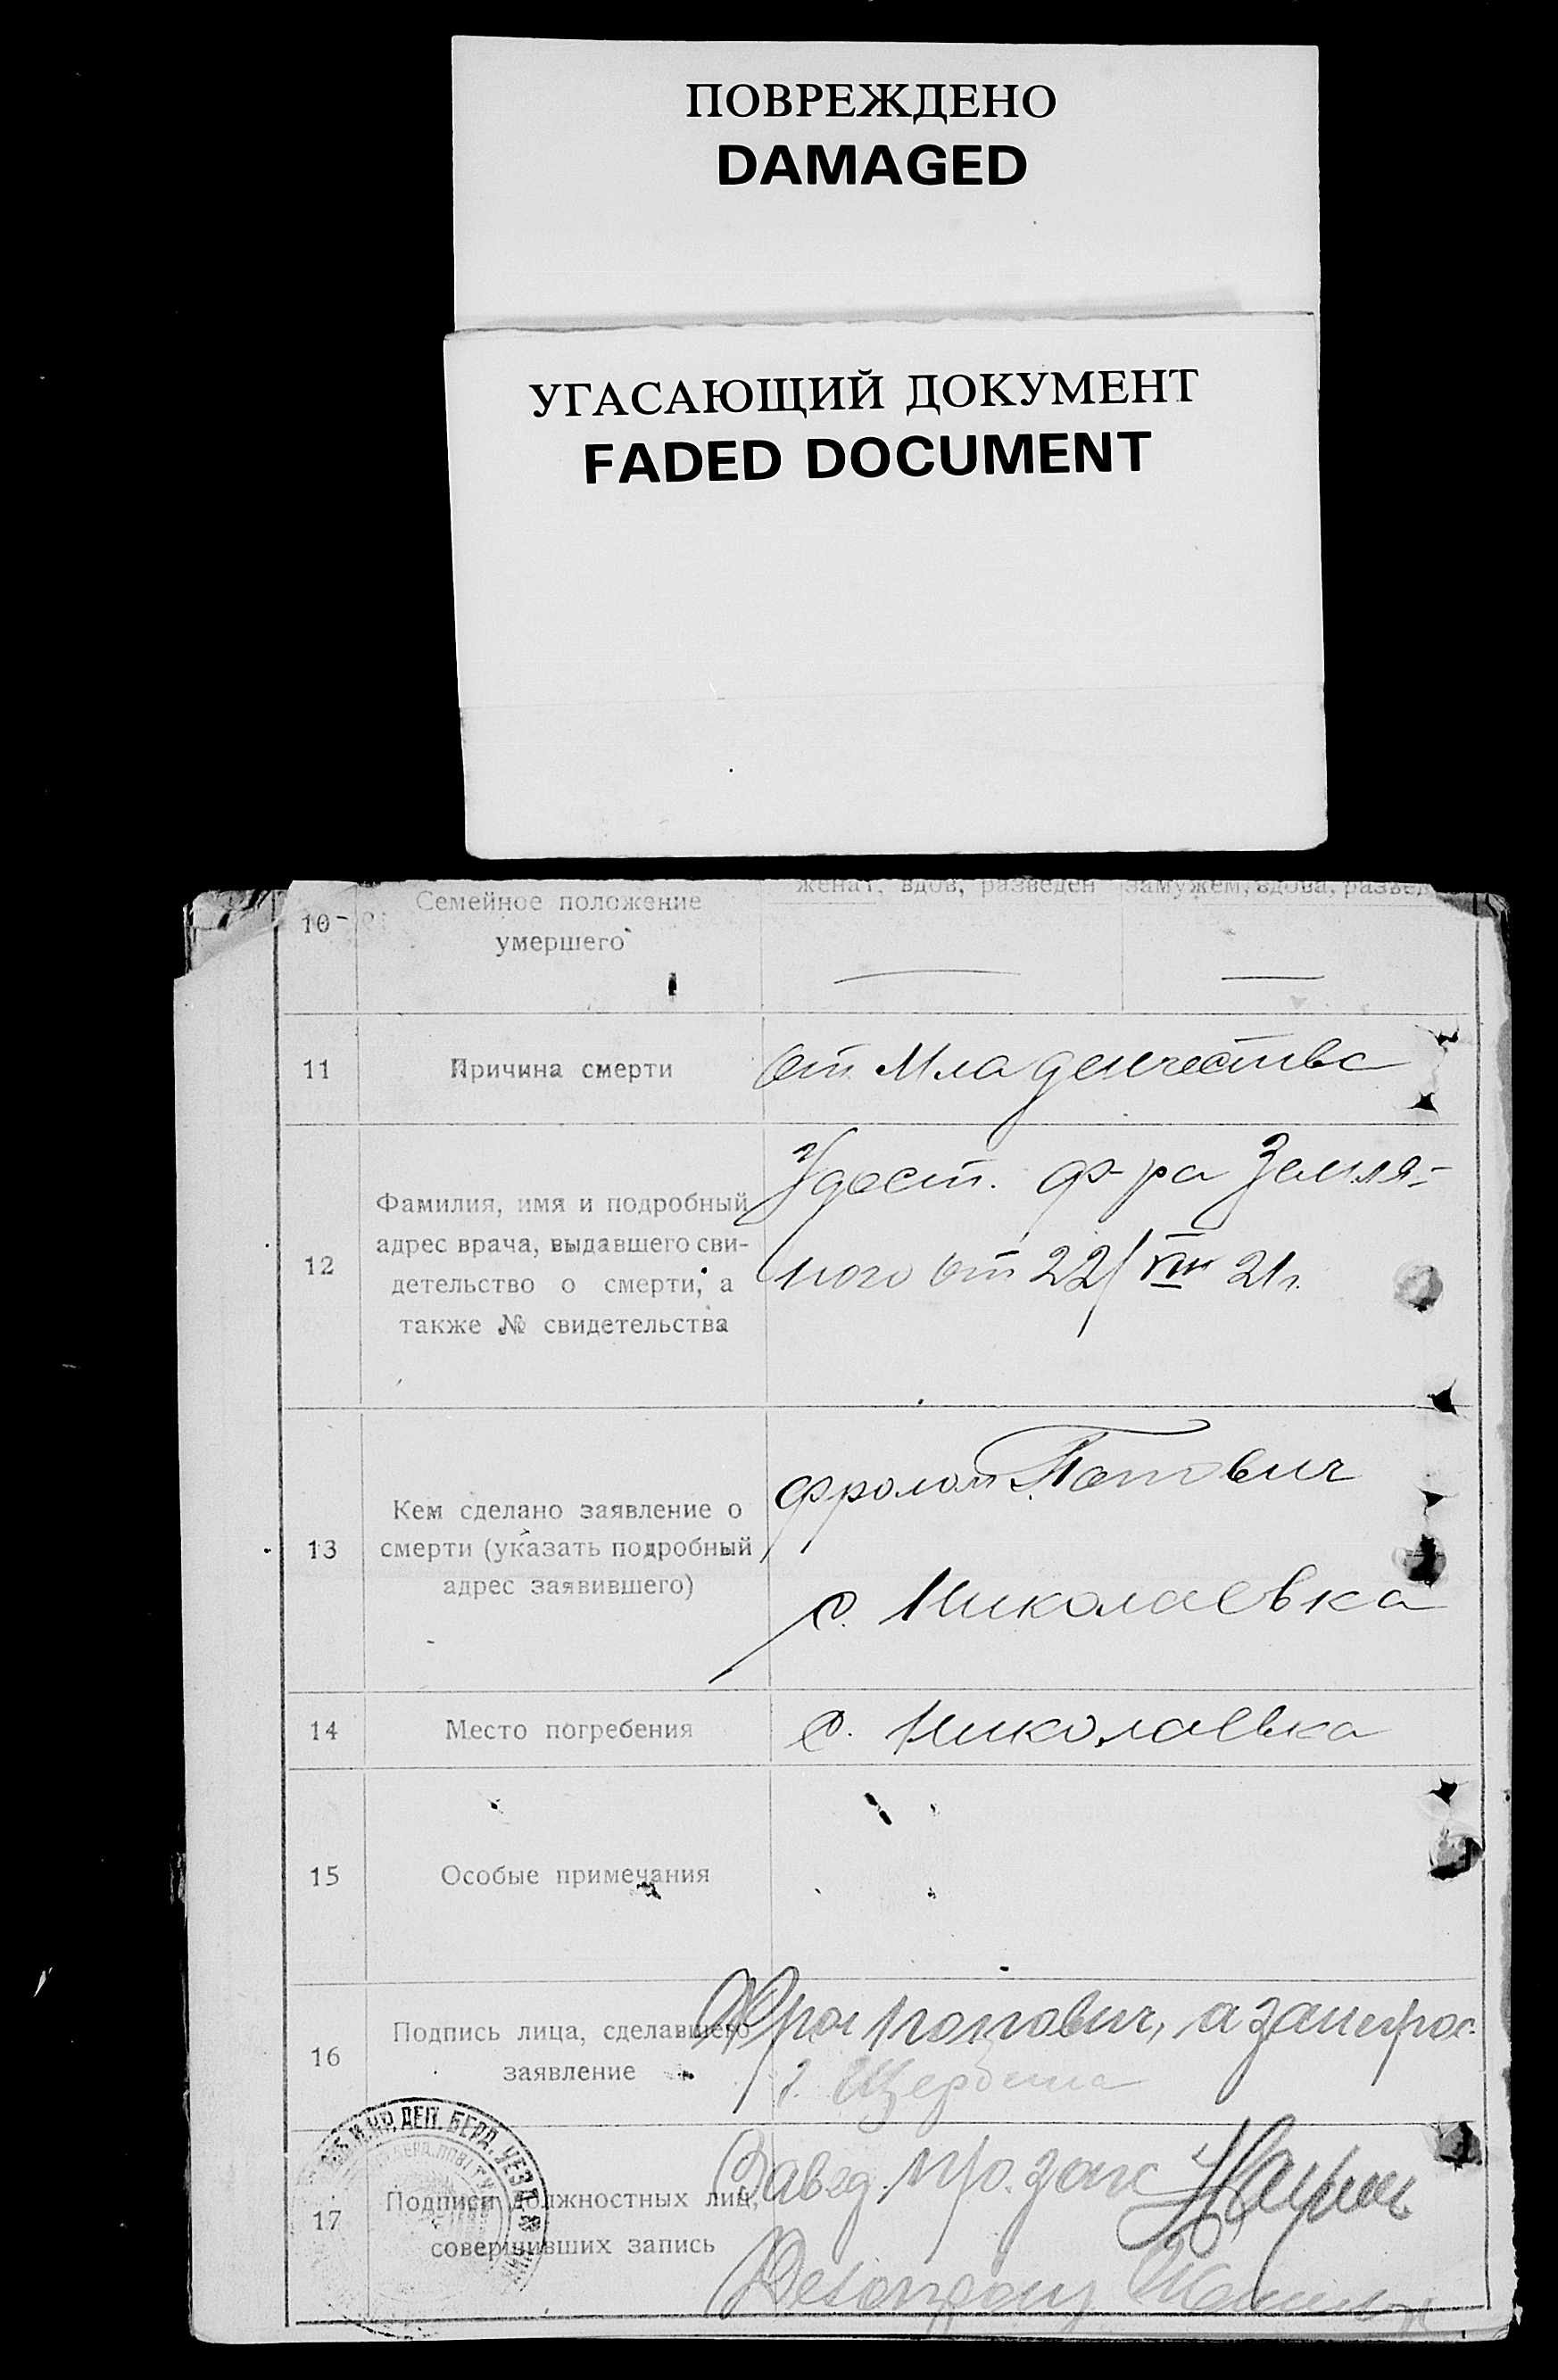 ПОВРЕЖДЕНО
DAMAGED
УГАСАЮЩИЙ ДОКУМЕНТ
FADED DOCUMENT
10
Семейное положение
умершего
женат, вдов, разведен
замужем, вдова,
11
Причина смерти
от Младенчества
12
Фамилия, имя и подробный
адрес врача, выдавшего сви-
детельство о смерти, а
также № свидетельства
Удост. ф-ра Земля-
ного от 22/VIII 21 г.
13
Кем сделано заявление о
смерти (указать подробный
адрес заявившего)
Фролом Попович
с. Николаевка
14
Место погребения
с. Николаевка
15
Особые примечания
16
Подпись лица, сделавшего
заявление
Фрол Попович, а за неграс.
Щербина
17
Подписи должностных лиц,
совершивших запись
Завед. п/о. загс
Делопроиз
ДЕП. БЕРД. УЕЗД